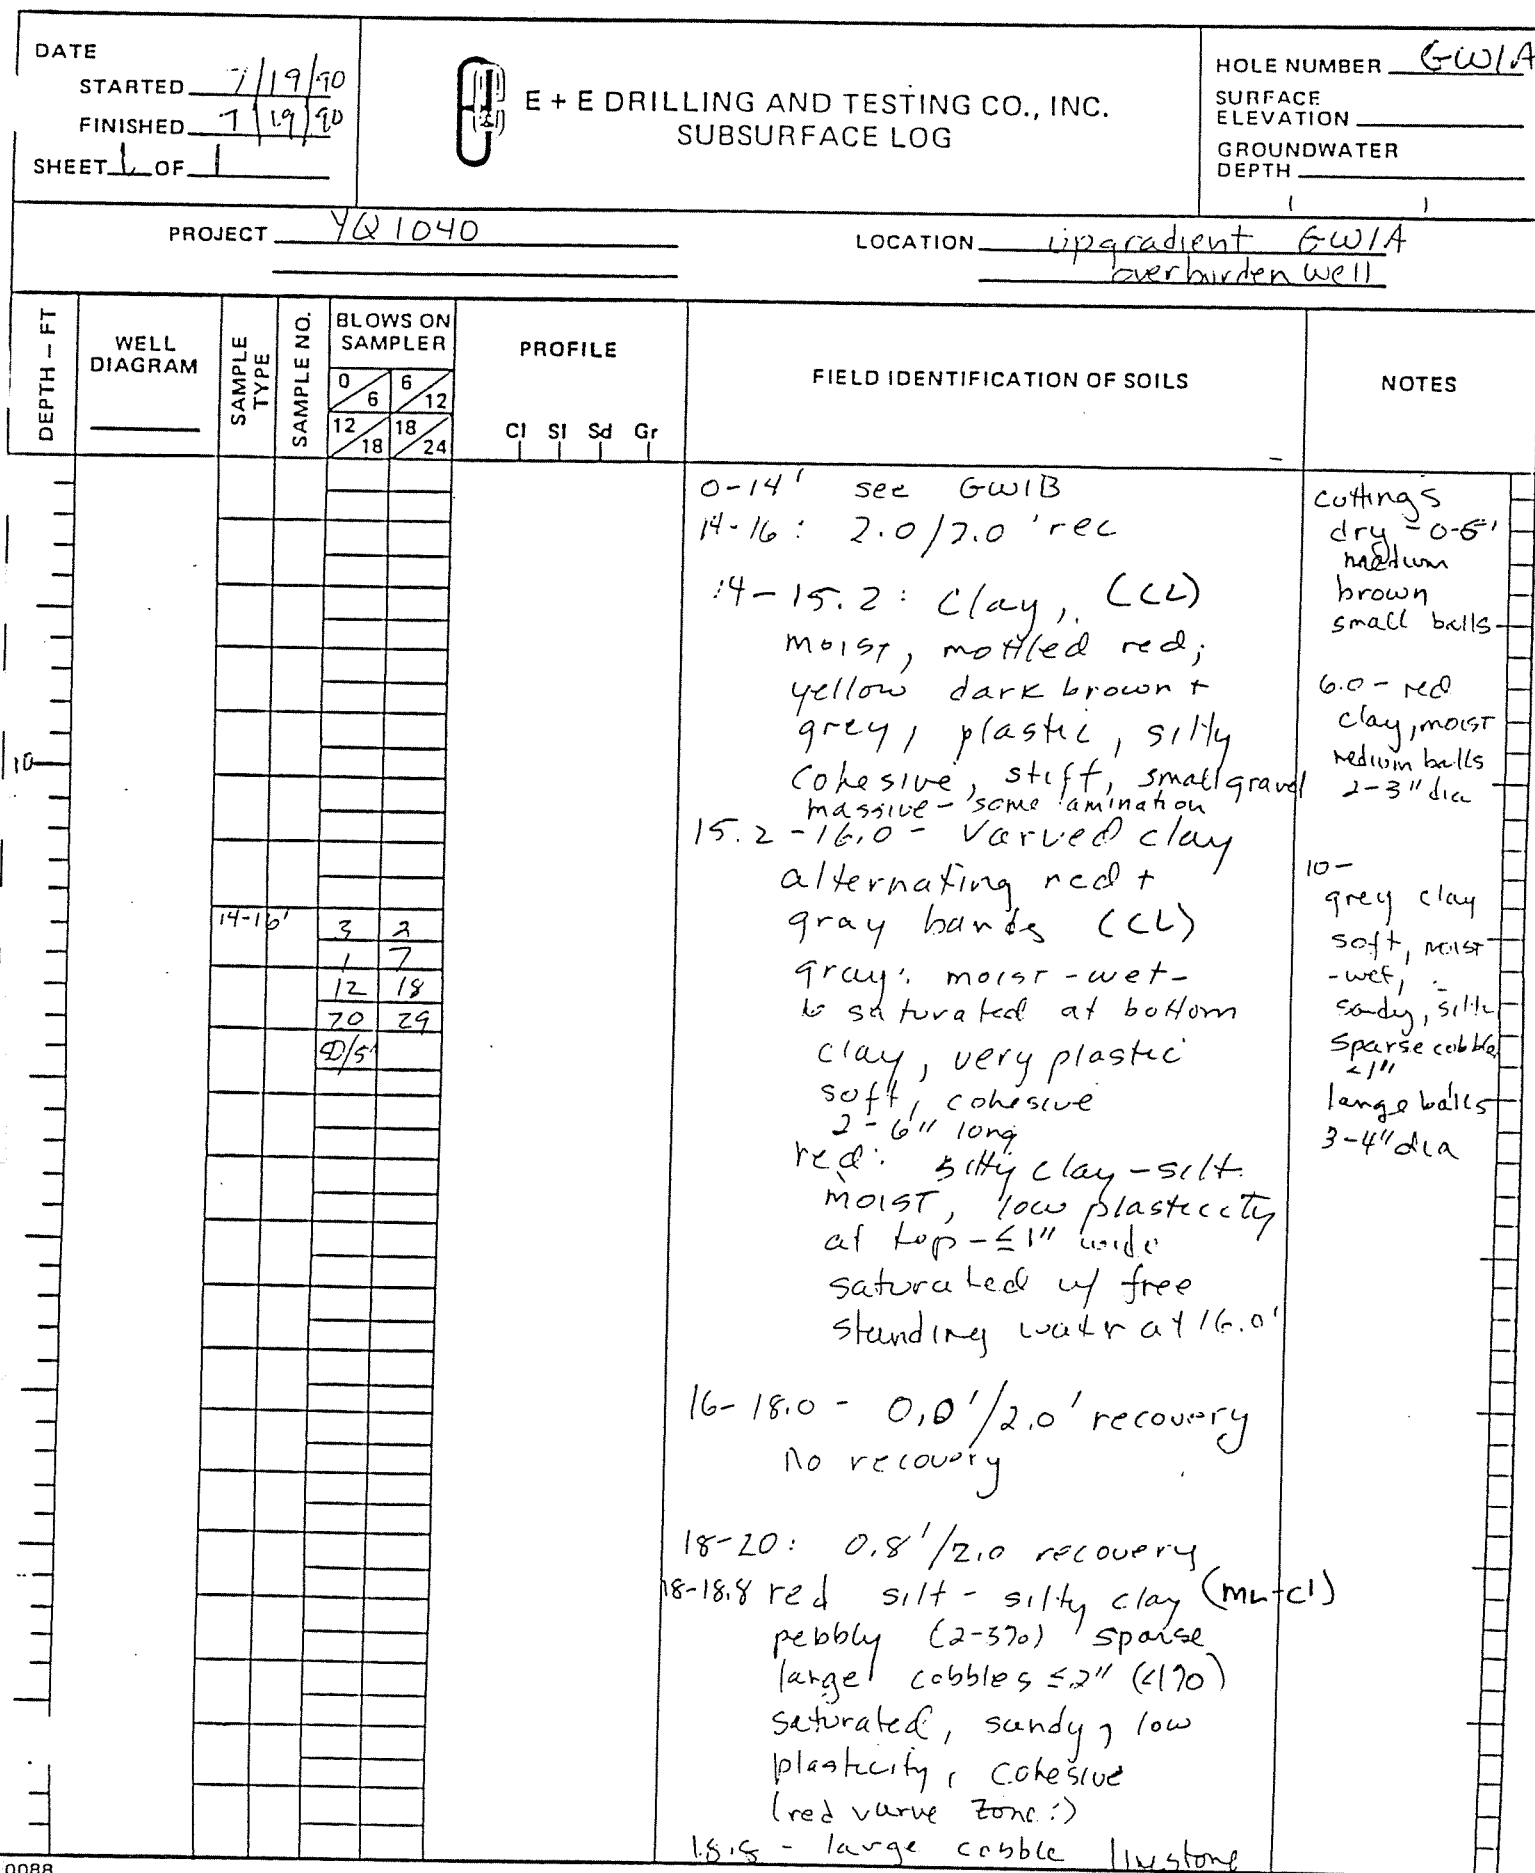 DATE
STARTED 7/19/90
FINISHED 7/19/90
SHEET 1 OF 1
E + E DRILLING AND TESTING CO., INC.
SUBSURFACE LOG
HOLE NUMBER GW1A
SURFACE
ELEVATION
GROUNDWATER
DEPTH
( )
PROJECT YQ1040
LOCATION upgradient GW1A
overburden well
DEPTH – FT
WELL
DIAGRAM
SAMPLE
TYPE
SAMPLE NO.
BLOWS ON
SAMPLER
0/6 6/12
12/18 18/24
PROFILE
Cl Sl Sd Gr
FIELD IDENTIFICATION OF SOILS
NOTES
10
14-16'
3 2
1 7
12 18
20 29
50/5'
0-14' see GW1B
14-16: 2.0/2.0' rec
14-15.2: Clay, (CL)
moist, mottled red;
yellow dark brown +
grey, plastic, silty
cohesive, stiff, small gravel
massive - some lamination
15.2-16.0 - Varved clay
alternating red +
gray bands (CL)
gray: moist-wet-
to saturated at bottom
clay, very plastic
soft, cohesive
2-6" long
red: silty clay-silt
moist, low plasticity
at top - ≤1" wide
saturated w/ free
standing watr at 16.0'
16-18.0 - 0.0'/2.0' recovery
no recovery
18-20: 0.8'/2.0 recovery
18-18.8 red silt - silty clay (ML-Cl)
pebbly (2-3%) sparse
large cobbles ≤2" (<1%)
saturated, sandy, low
plasticity, cohesive
(red varve zone:)
18.8 - large cobble limestone
cuttings
dry - 0-5'
medium
brown
small balls
6.0 - red
clay, moist
medium balls
2-3" dia
10-
grey clay
soft, moist
-wet,
sandy, silty
sparse cobble
<1"
large balls
3-4" dia
0088